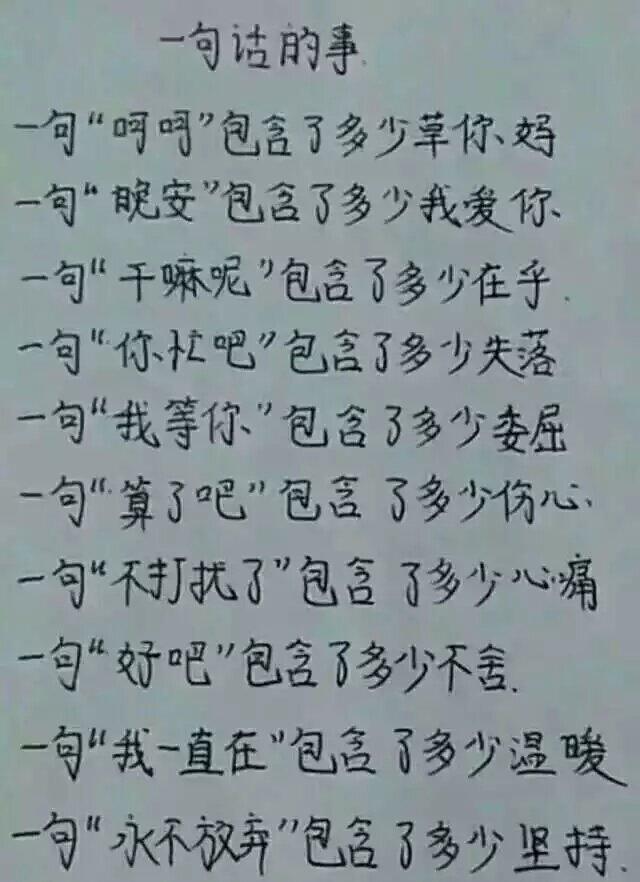 一句话的事.
一句“呵呵”包含了多少草你妈
一句“晚安”包含了多少我爱你
一句“干嘛呢”包含了多少在乎.
一句“你忙吧”包含了多少失落
一句“我等你”包含了多少委屈
一句“算了吧”包含了多少伤心.
一句“不打扰了”包含了多少心痛
一句“好吧”包含了多少不舍.
一句“我一直在”包含了多少温暖
一句“永不放弃”包含了多少坚持.